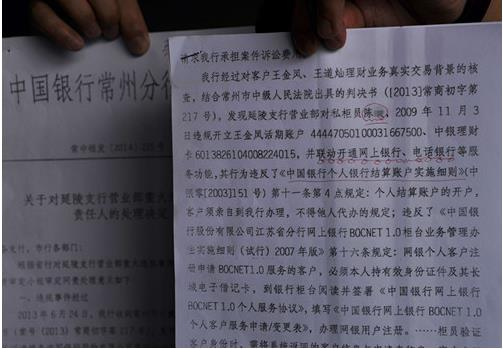 中国银行常州分行
常中银发［2014］225号
关于对延陵支行营业部重大违
责任人的处理决定
各支行、市行各部门：
一、违规事件经过
2013年6月24日，我行收到常州
请求我行承担案件诉讼费
我行经过对客户王金凤、王道灿理财业务真实交易背景的核
查，结合常州市中级人民法院出具的判决书（[2013]常商初字第
217号），发现延陵支行营业部对私柜员陈 ，2009年11月3
日违规开立王金凤活期账户4444705010003166​7500、中银理财
卡6013826104008224015，并联动开通网上银行、电话银行等服
务功能，其行为违反了《中国银行个人银行结算账户实施细则》（中
银零[2003]151号）第十一条第4点规定：个人结算账户的开户，
客户须亲自到我行办理，不得他人代办的规定；违反了《中国银
行股份有限公司江苏省分行网上银行BOCNET1.0柜台业务管理办
法实施细则（试行）2007年版》第十六条规定：网银个人客户注
册申请BOCNET1.0服务的客户，必须本人持有效身份证件及其长
城电子借记卡，到银行柜台阅读并签署《中国银行网上银行
BOCNET1.0个人服务协议》，填写《中国银行网上银行BOCNET1.0
个人客户服务申请/变更表》，办理网银用户注册。……柜员验证
客户身份时，需将系统返回的客户信息与申请表